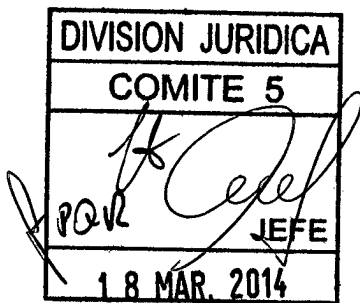 DIVISION JURIDICA
COMITE 5
PQR
JEFE
18 MAR. 2014